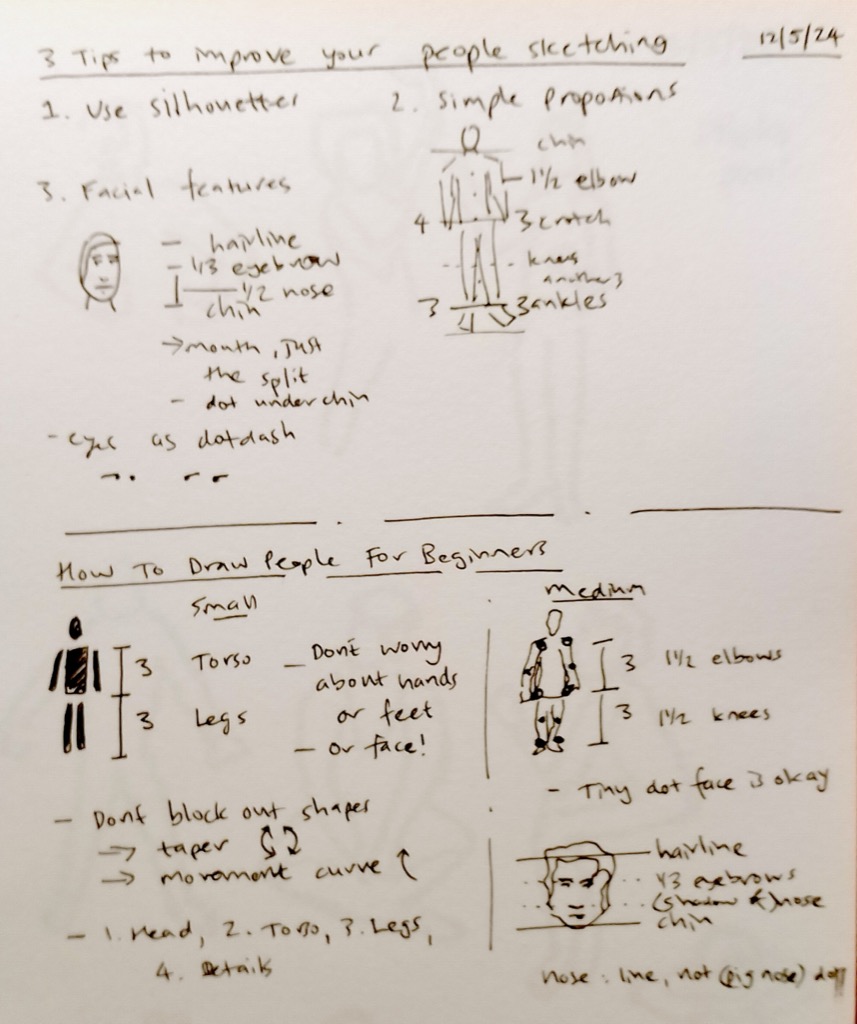 3 Tips to improve your people sketching
12/5/24
1. Use silhouetter
2. Simple Propotions
chin
1½ elbow
4
3 crotch
knees
another 3
3
3 ankles
3. Facial features
- hairline
- 1/3 eyebrow
1/2 nose
chin
→ mouth, just
the split
- dot under chin
- eyes as dotdash
How To Draw People For Beginners
Small
3 Torso
3 Legs
- Don't worry
about hands
or feet
- or face!
- Dont block out shapes
→ taper
→ movement curve
- 1. Head, 2. Torso, 3. Legs,
4. Details
Medium
3 1½ elbows
3 1½ knees
- Tiny dot face is okay
hairline
1/3 eyebrows
(shadow of) nose
chin
nose: line, not (pig nose) dot